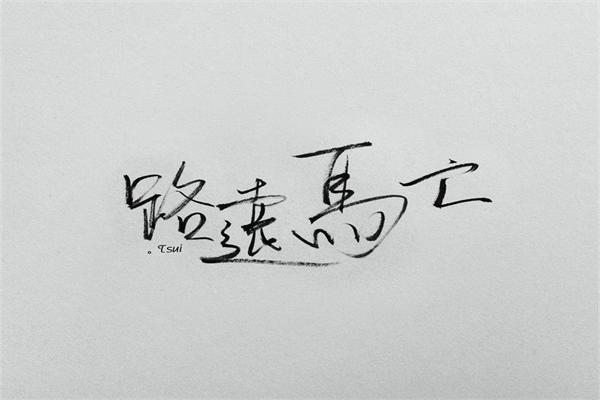 路遠馬亡
。Tsui